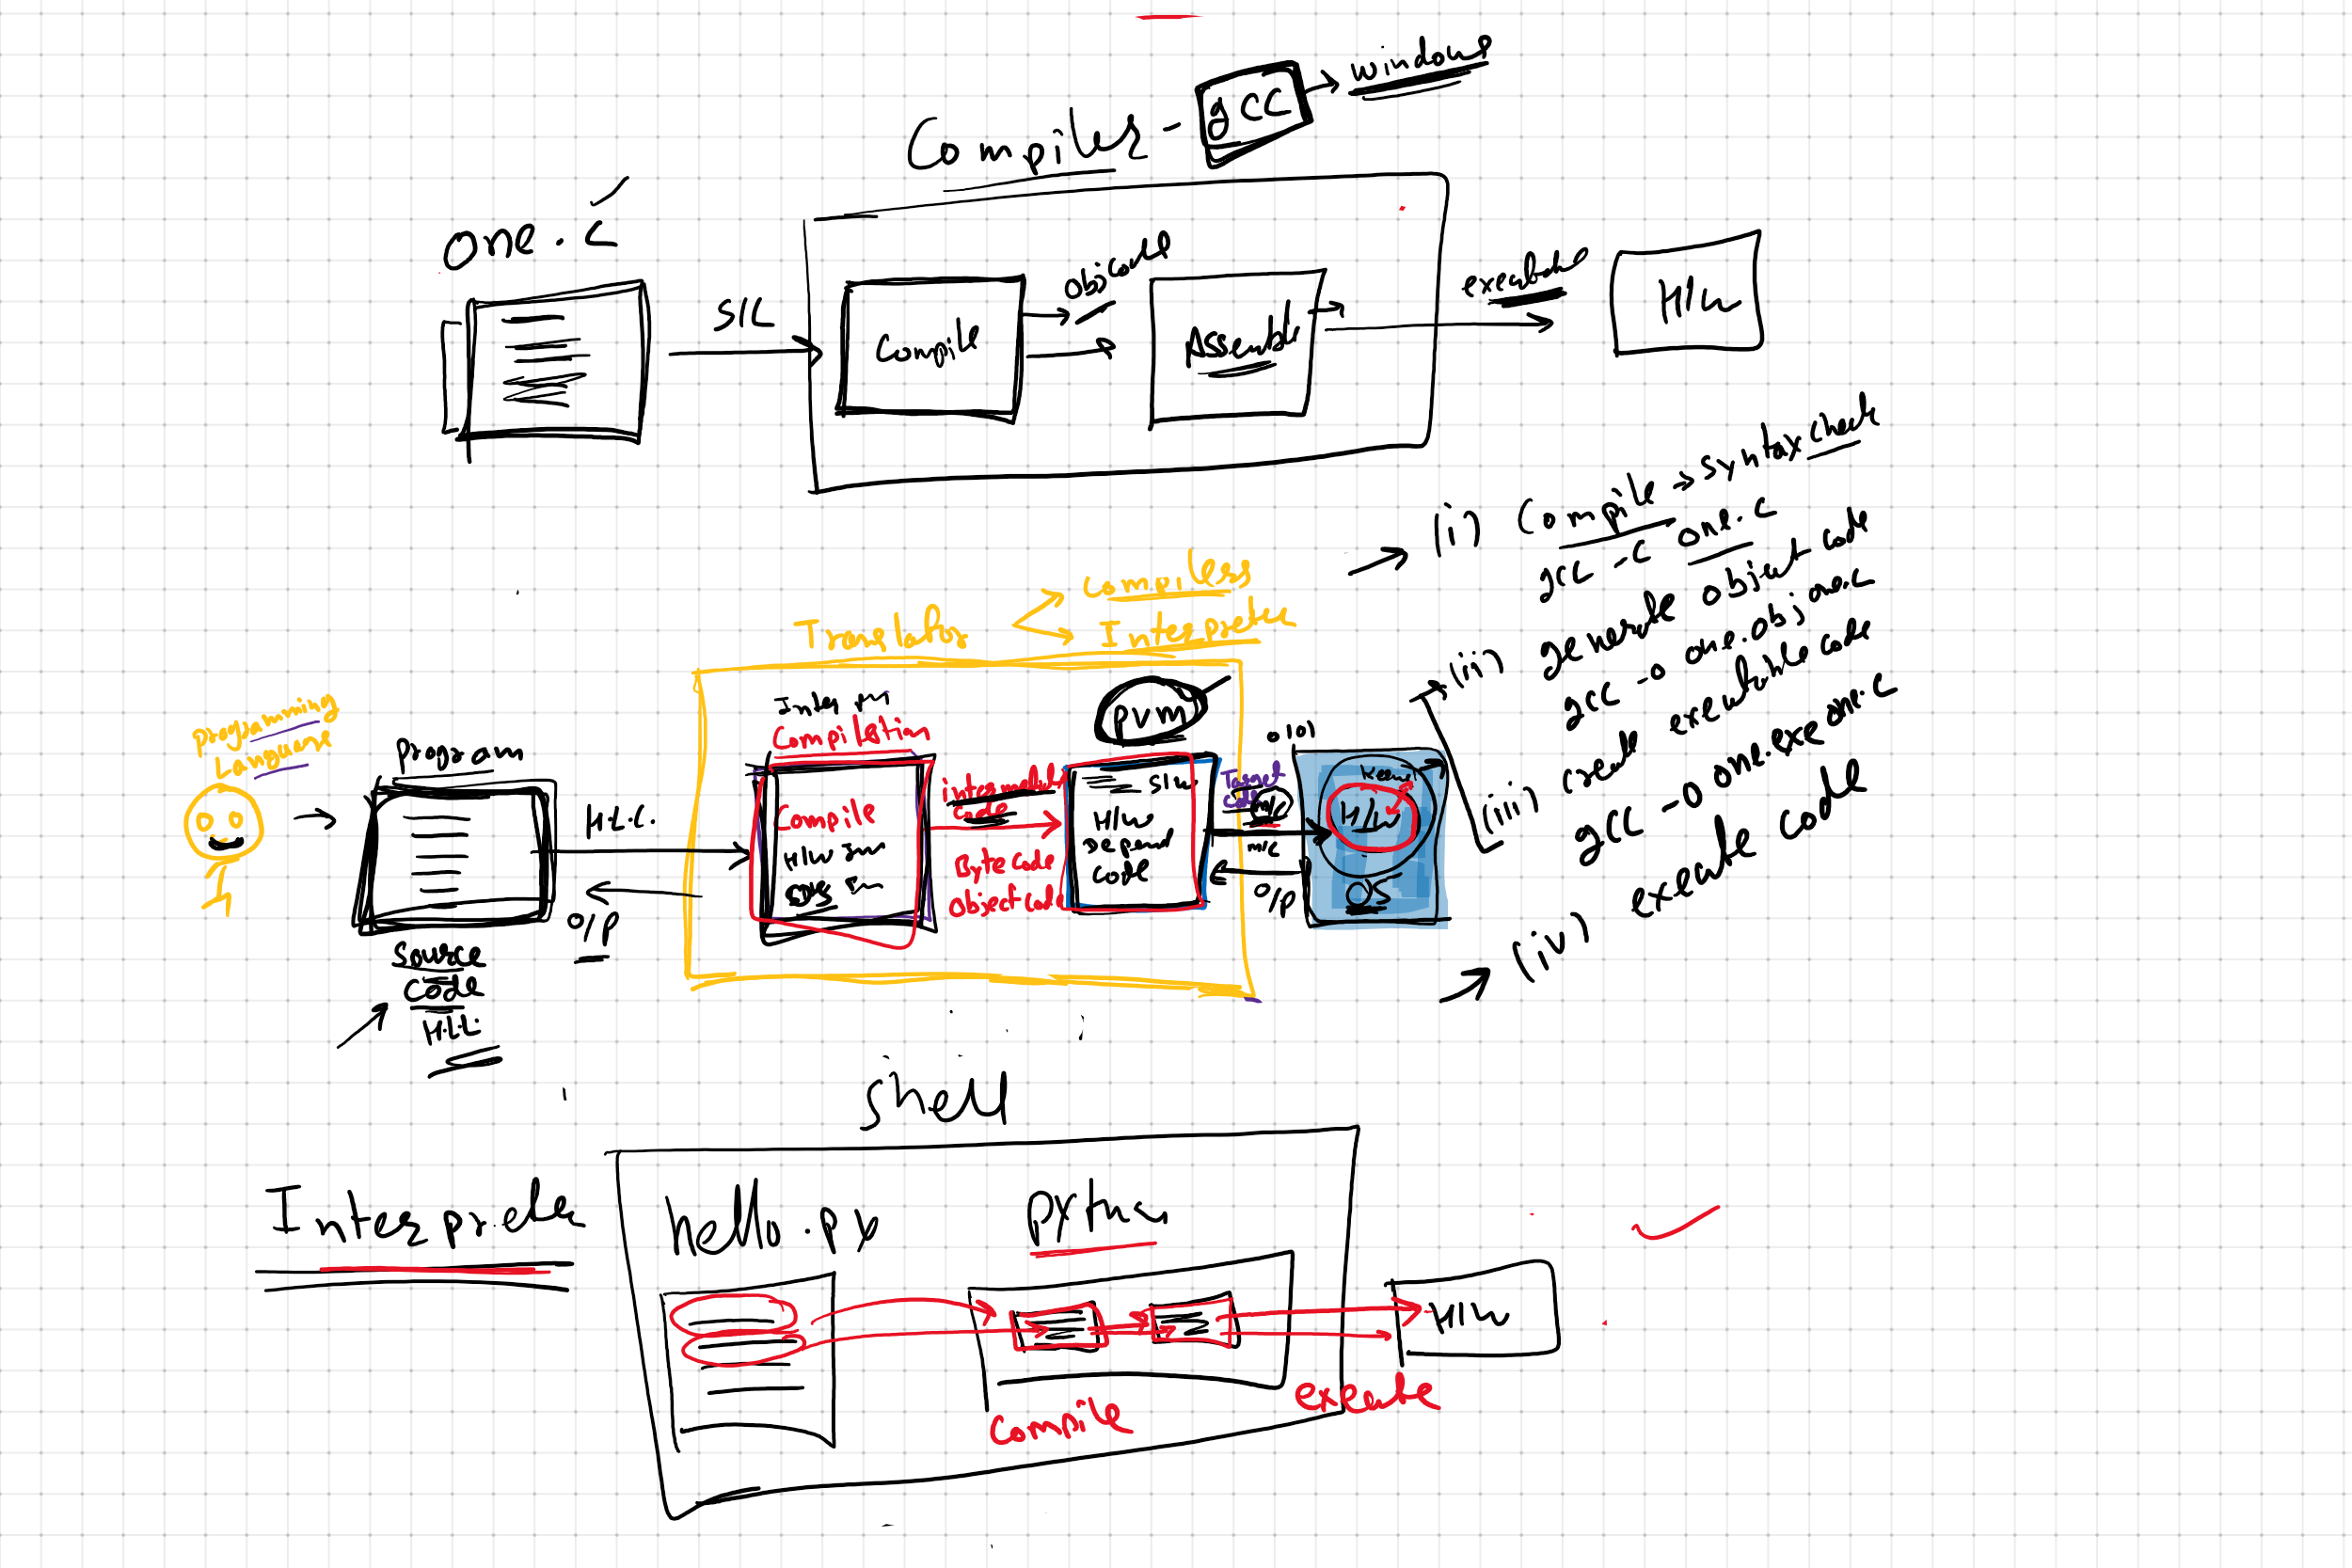 windows
Compiler - gcc
one.c
S/C
Compile
objcode
Assemble
executable
H/W
(i) Compile → syntax check
gcc -c one.c
(ii) generate object code
gcc -o one.obj one.c
(iii) create executable code
gcc -o one.exe one.c
(iv) execute code
Translator
Compilers
Interpreter
programming
Language
program
Source
code
H.L.L.
H.L.C.
O/P
Compilation
Compile
intermediate
code
Byte code
object code
pvm
S/W
H/W
Depend
code
0101
Target
code
m/c
m/c
O/P
Kernel
H/W
OS
shell
Interpreter
hello.py
python
H/W
Compile
execute